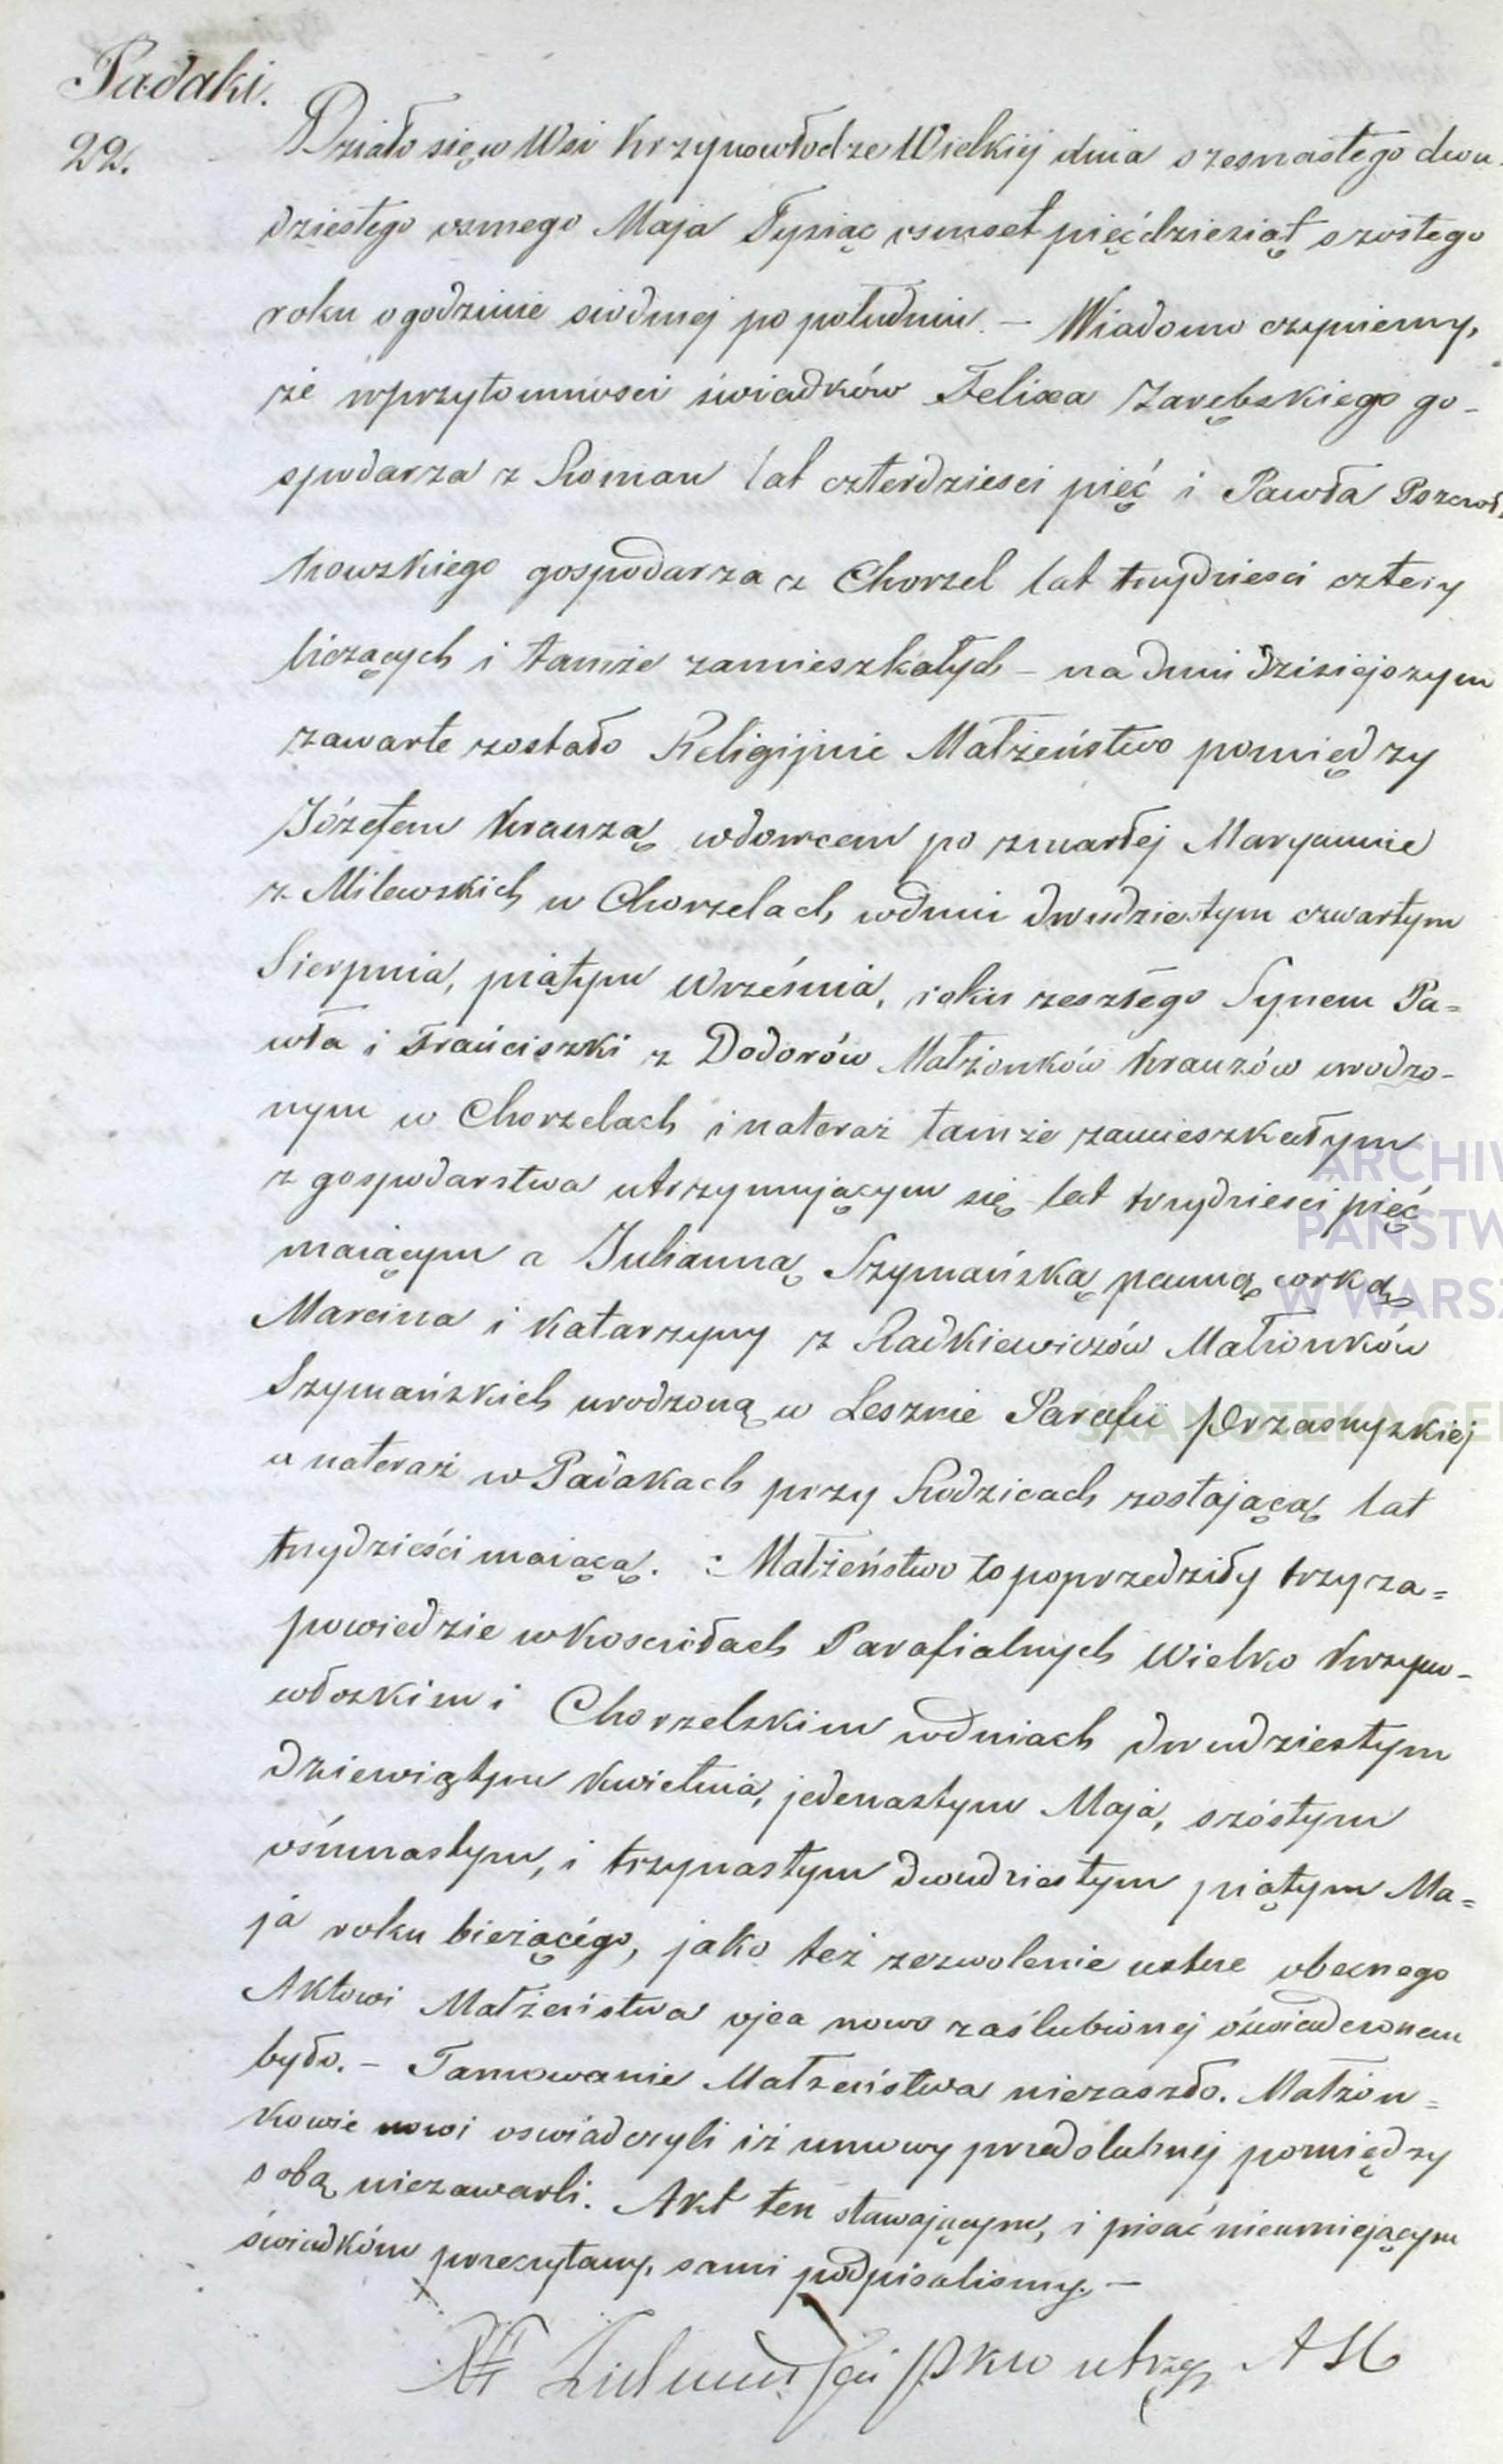 Padaki.
22.
Działo się w Wsi Krzynowłodze Wielkiej dnia szesnastego dwu-
dziestego osmego Maja Tysiąc osmset pięćdziesiąt szostego
roku o godzinie siodmej po południu. – Wiadomo czyniemy,
że wprzytomnosci świadków Felixa Zarębskiego go-
spodarza z Roman lat czterdziesci pięć i Pawła
kowskiego gospodarza z Chorzel lat trzydziesci cztery
liczących i tamże zamieszkałych – na dniu dzisiejszym
zawarte zostało Religijnie Małżeństwo pomiędzy
Józefem Krauzą wdowcem po zmarłej Maryannie
z Milewskich w Chorzelach wdniu dwudziestym czwartym
Sierpnia, piątym Września, roku zeszłego Synem Pa=
wła i Franciszki z Dodorów Małżonków Krauzów urodzo-
nym w Chorzelach i nateraz tamże zamieszkałym
z gospodarstwa utrzymującym się lat trzydziesci pięć
maiącym a Julianną Szymańską panną corką
Marcina i Katarzyny z Radkiewiczów Małżonków
Szymańskich urodzoną w Lesznie Parafii Przasnyskiej
a nateraz w Padakach przy Rodzicach zostającą lat
trzydzieści maiącą. : Małżeństwo to poprzedziły trzy za=
powiedzie w Kosciołach Parafialnych Wielko Krzyno-
włoskim i Chorzelskim wdniach dwudziestym
dziewiątym Kwietnia, jedenastym Maja, szóstym
ośmnastym, i trzynastym dwudziestym piątym Ma=
ja roku bieżącégo, jako też zezwolenie ustne obecnego
Aktowi Małżeństwa ojca nowo zaślubionej oświadczonem
było. – Tamowanie Małżeństwa niezaszło. Małżon=
kowie nowi oswiadczyli iż umowy przedslubnej pomiędzy
sobą niezawarli. Akt ten stawającym, i pisać nieumiejącym
świadkóm przeczytany, sami podpisalismy. –
utrzy A S C
ARCHIW
PAŃSTW
W WARSZ
SKANOTEKA GE